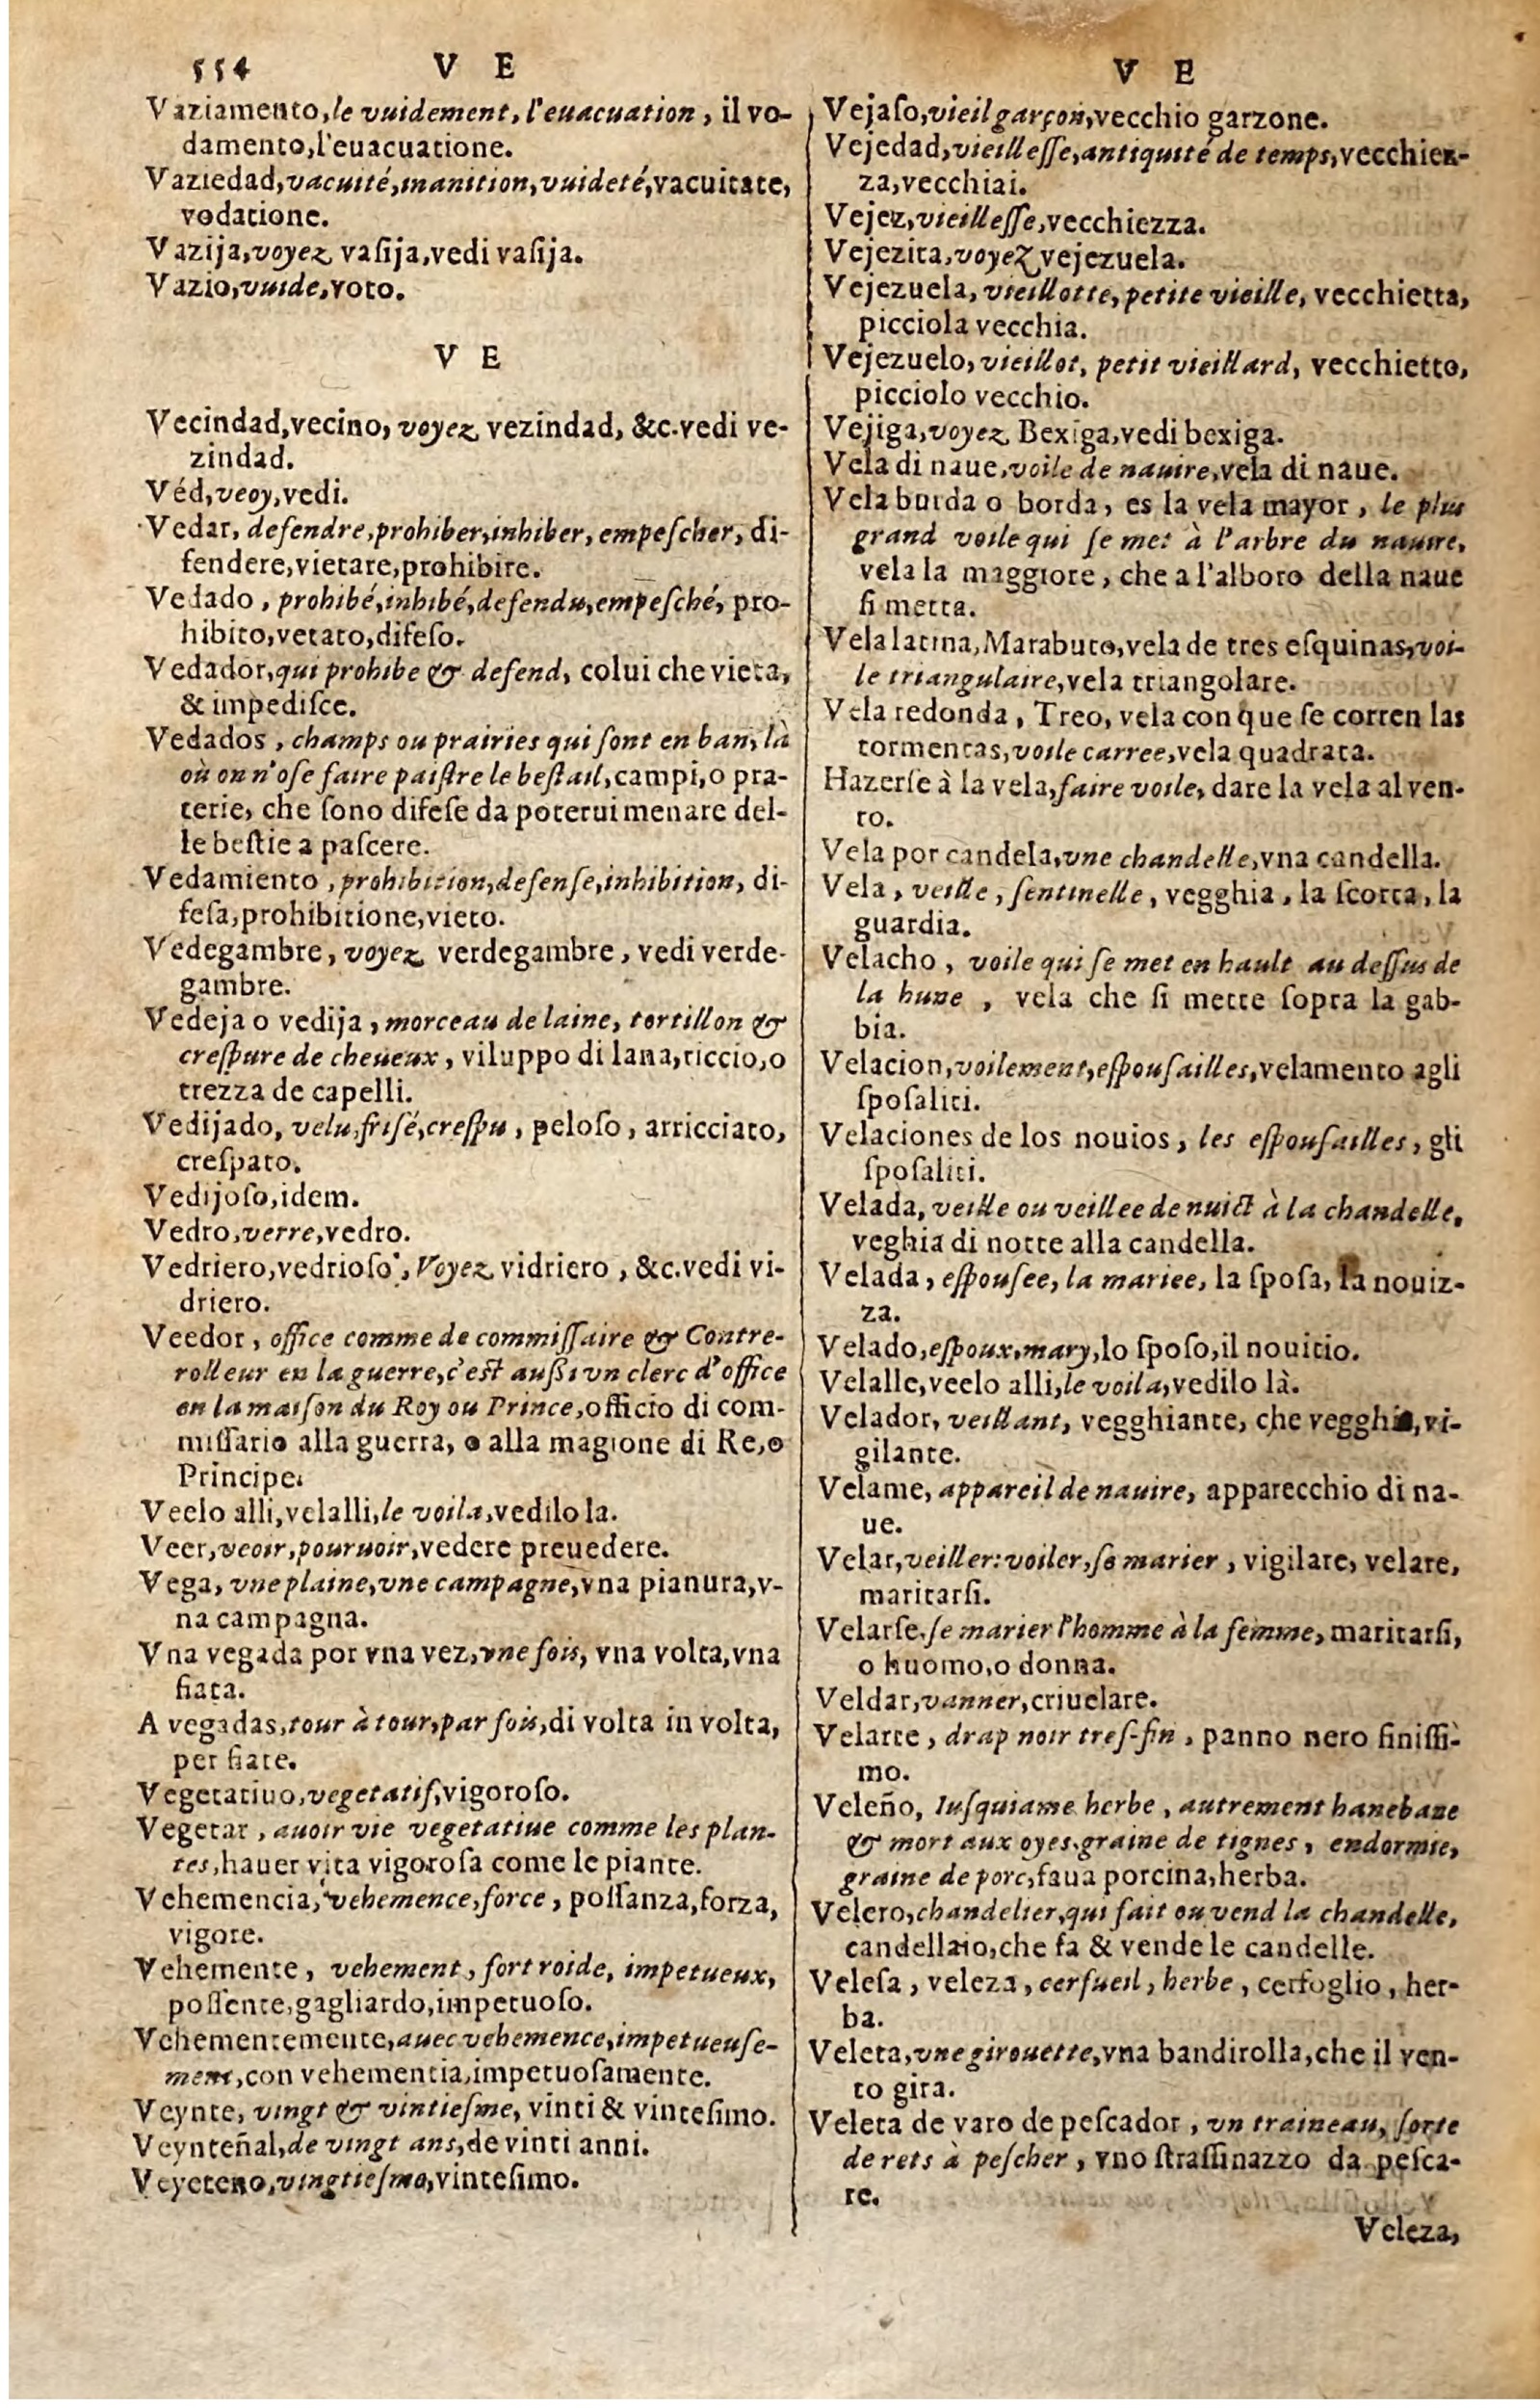 554 V E
Vaziamento,le vuidement, l'euacuation, il vo-
damento,l'euacuatione.
Vaziedad,vacuité,inanition,vuideté,vacuitate,
vodatione.
Vazija,voyez vaſija,vedi vaſija.
Vazio,vuide,voto.
V E
Vecindad,vecino, voyez vezindad, &c.vedi ve-
zindad.
Véd,veoy,vedi.
Vedar, defendre,prohiber,inhiber, empeſcher, di-
fendere,vietare,prohibire.
Vedado, prohibé,inhibé,defendu,empeſché, pro-
hibito,vetato,difeſo.
Vedador,qui prohibe & defend, colui che vieta,
& impediſce.
Vedados, champs ou prairies qui ſont en ban, là
où on n'oſe faire paiſtre le beſtail,campi,o pra-
terie, che ſono difeſe da poterui menare del-
le beſtie a paſcere.
Vedamiento, prohibition,defenſe,inhibition, di-
feſa,prohibitione,vieto.
Vedegambre, voyez verdegambre, vedi verde-
gambre.
Vedeja o vedija, morceau de laine, tortillon &
creſpure de cheueux, viluppo di lana,riccio,o
trezza de capelli.
Vedijado, velu,friſé,creſpu, peloſo, arricciato,
creſpato.
Vedijoſo,idem.
Vedro,verre,vedro.
Vedriero,vedrioſo, Voyez vidriero, &c.vedi vi-
driero.
Veedor, office comme de commiſſaire & Contre-
rolleur en la guerre,c'eſt auſſi vn clerc d'office
en la maiſon du Roy ou Prince,officio di com-
miſſario alla guerra, o alla magione di Re,o
Principe.
Veelo alli,velalli,le voila,vedilo la.
Veer,veoir,pouruoir,vedere preuedere.
Vega, vne plaine,vne campagne,vna pianura,v-
na campagna.
Vna vegada por vna vez,vne fois, vna volta,vna
fiata.
A vegadas,tour à tour,par fois,di volta in volta,
per fiate.
Vegetatiuo,vegetatif,vigoroſo.
Vegetar, auoir vie vegetatiue comme les plan-
tes,hauer vita vigoroſa come le piante.
Vehemencia, vehemence,force, poſſanza,forza,
vigore.
Vehemente, vehement, fort roide, impetueux,
poſſente,gagliardo,impetuoſo.
Vehementemente,auec vehemence,impetueuſe-
ment,con vehementia,impetuoſamente.
Veynte, vingt & vintieſme, vinti & vinteſimo.
Veynteñal,de vingt ans,de vinti anni.
Veyeteno,vingtieſme,vinteſimo.
V E
Vejaſo,vieil garçon,vecchio garzone.
Vejedad,vieilleſſe,antiquité de temps,vecchiez-
za,vecchiai.
Vejez,vieilleſſe,vecchiezza.
Vejezita,voyez vejezuela.
Vejezuela, vieillotte,petite vieille, vecchietta,
picciola vecchia.
Vejezuelo,vieillot, petit vieillard, vecchietto,
picciolo vecchio.
Vejiga,voyez Bexiga,vedi bexiga.
Vela di naue,voile de nauire,vela di naue.
Vela burda o borda, es la vela mayor, le plus
grand voile qui ſe met à l'arbre du nauire,
vela la maggiore, che a l'alboro della naue
ſi metta.
Vela latina,Marabuto,vela de tres eſquinas,voi-
le triangulaire,vela triangolare.
Vela redonda, Treo, vela con que ſe corren las
tormentas,voile carree,vela quadrata.
Hazerſe à la vela,faire voile, dare la vela al ven-
to.
Vela por candela,vne chandelle,vna candella.
Vela, veille, ſentinelle, vegghia, la ſcorta, la
guardia.
Velacho, voile qui ſe met en hault au deſſus de
la hune, vela che ſi mette ſopra la gab-
bia.
Velacion,voilement,eſpouſailles,velamento agli
ſpoſaliti.
Velaciones de los nouios, les eſpouſailles, gli
ſpoſaliti.
Velada, veille ou veillee de nuict à la chandelle,
veghia di notte alla candella.
Velada, eſpouſee, la mariee, la ſpoſa, la nouiz-
za.
Velado,eſpoux,mary,lo ſpoſo,il nouitio.
Velalle,veelo alli,le voila,vedilo là.
Velador, veillant, vegghiante, che vegghia,vi-
gilante.
Velame, appareil de nauire, apparecchio di na-
ue.
Velar,veiller:voiler,ſe marier, vigilare, velare,
maritarſi.
Velarſe,ſe marier l'homme à la femme, maritarſi,
o huomo,o donna.
Veldar,vanner,criuelare.
Velarte, drap noir treſ-fin, panno nero finiſſi-
mo.
Veleño, Iuſquiame herbe, autrement hanebane
& mort aux oyes,graine de tignes, endormie,
graine de porc,faua porcina,herba.
Velero,chandelier,qui fait ou vend la chandelle,
candellaio,che fa & vende le candelle.
Veleſa, veleza, cerfueil, herbe, cerfoglio, her-
ba.
Veleta,vne girouette,vna bandirolla,che il ven-
to gira.
Veleta de varo de peſcador, vn traineau, ſorte
de rets à peſcher, vno ſtraſſinazzo da peſca-
re.
Veleza,